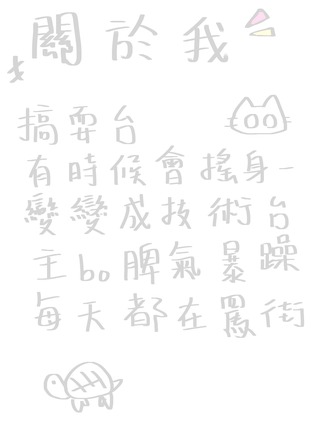 關於我
搞耍台
有時候會搖身一
變變成技術台
主bo脾氣暴躁
每天都在罵街